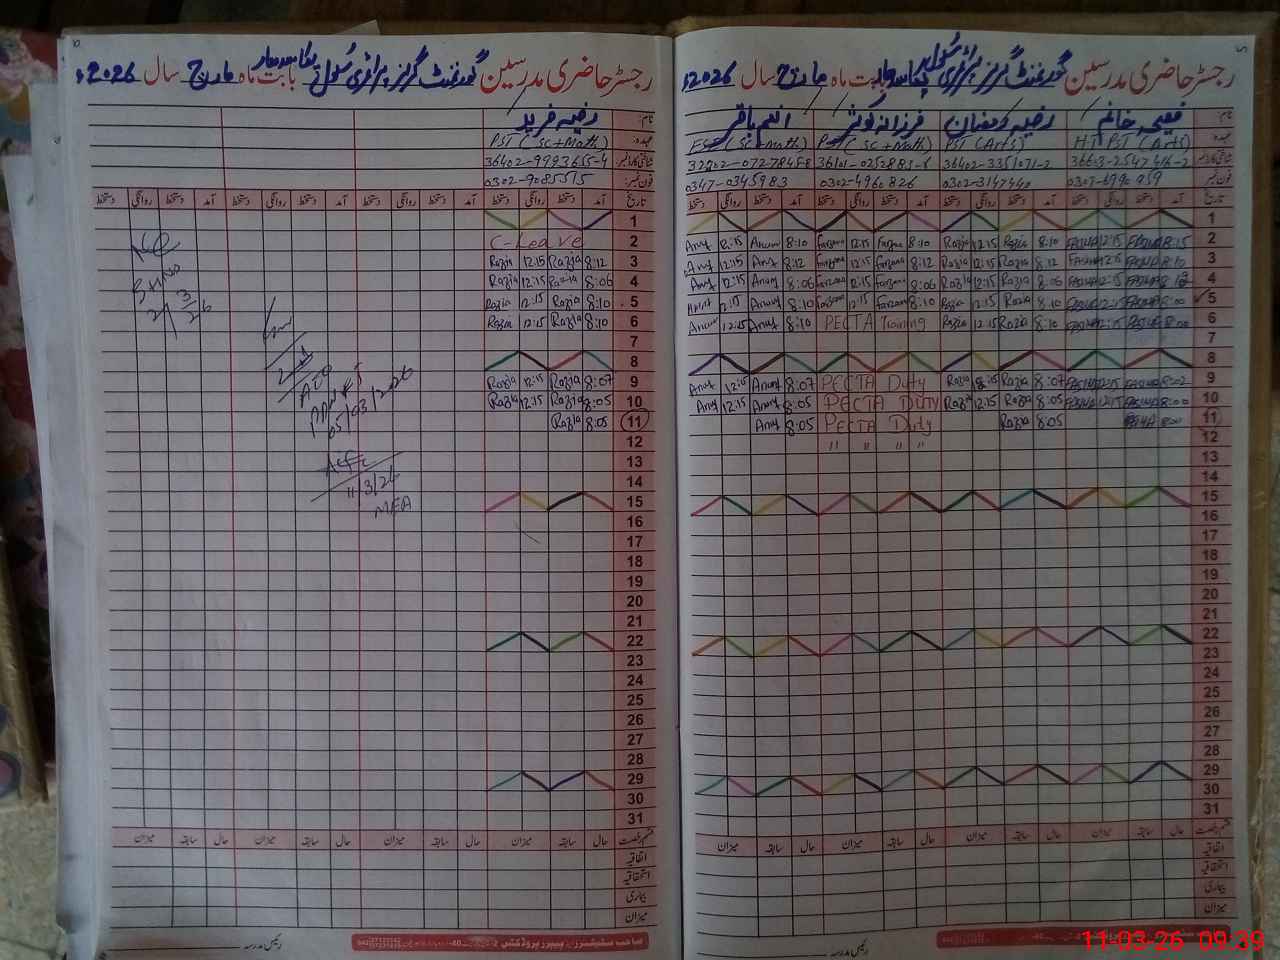 رجسٹر حاضری مدرسین گورنمنٹ گرلز پرائمری سکول بابت ماہ مارچ سال 2026ء
نام
فصیحہ خانم
رضیہ رمضان
فرزانہ کوثر
انعم باقر
عہدہ
HT PST (Arts)
PST (Arts)
PST (Sc + Math)
شناختی کارڈ نمبر
36603-2547416-2
36402-3351071-2
36101-0252883-8
فون نمبر:
0302-3147440
0302-4960826
0347-0345983
تاریخ آمد دستخط روانگی دستخط آمد دستخط روانگی دستخط آمد دستخط روانگی دستخط آمد دستخط روانگی دستخط
1
2 8:15 FASIHA 12:15 FASIHA 8:10 Razia 12:15 Razia 8:10 Farzana 12:15 Farzana 8:10 Anum 12:15 Anum
3 8:10 FASIHA 12:15 FASIHA 8:12 Razia 12:15 Razia 8:12 Farzana 12:15 Farzana 8:12 Anum 12:15 Anum
4 FASIHA 12:15 FASIHA 8:06 Razia 12:15 Razia 8:06 Farzana 12:15 Farzana 8:06 Anum 12:15 Anum
5 8:00 FASIHA 12:15 FASIHA 8:10 Razia 12:15 Razia 8:10 Farzana 12:15 Farzana 8:10 Anum 12:15
6 8:00 FASIHA 12:15 FASIHA 8:10 Razia 12:15 Razia PECTA Training 8:10 Anum 12:15 Anum
7
8
9 8:02 FASIHA 12:15 FASIHA 8:07 Razia Razia PECTA Duty 8:07 Anum 12:15 Anum
10 8:00 FASIHA 12:15 FASIHA 8:05 Razia 12:15 Razia PECTA DUTY 8:05 Anum 12:15 Anum
11 8:00 FASIHA 8:05 Razia PECTA Duty 8:05 Anum
12 " " " "
13
14
15
16
17
18
19
20
21
22
23
24
25
26
27
28
29
30
31
حال سابقہ میزان حال سابقہ میزان حال سابقہ میزان حال سابقہ میزان
اتفاقیہ
استحقاقیہ
بیماری
میزان
رئیس مدرسہ
11-03-26 09:39
رجسٹر حاضری مدرسین گورنمنٹ گرلز پرائمری سکول بابت ماہ مارچ سال 2026ء
نام
رضیہ فرید
عہدہ
PST (Sc + Math)
شناختی کارڈ نمبر
36402-9993655-4
فون نمبر:
0302-9085515
تاریخ آمد دستخط روانگی دستخط آمد دستخط روانگی دستخط آمد دستخط روانگی دستخط آمد دستخط روانگی دستخط
1
2 C-Leave
3 8:12 Razia 12:15 Razia
4 8:06 Razia 12:15 Razia
5 8:10 Razia 12:15 Razia
6 8:10 Razia 12:15 Razia
7
8
9 8:07 Razia 12:15 Razia
10 8:05 Razia 12:15 Razia
11 8:05 Razia
12
13
14
15
16
17
18
19
20
21
22
23
24
25
26
27
28
29
30
31
AEO
05/03/2026
11/3/26
MEA
حال سابقہ میزان حال سابقہ میزان حال سابقہ میزان حال سابقہ میزان
اتفاقیہ
استحقاقیہ
بیماری
میزان
رئیس مدرسہ